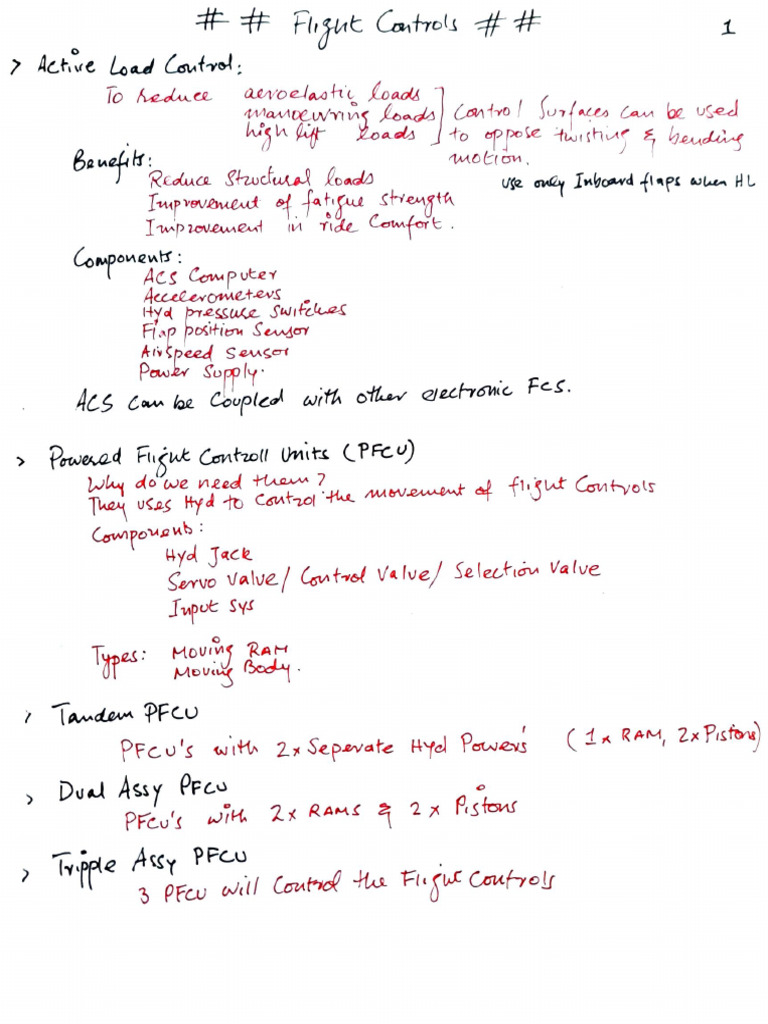 # # Flight Controls # #
1
> Active Load Control:
To reduce aeroelastic loads
manoewring loads
high lift loads
Control Surfaces can be used
to oppose twisting & bending
motion.
Benefits:
Reduce Structural loads
use only Inboard flaps when HL
Improvement of fatigue strength
Improvement in ride Comfort.
Components:
ACS Computer
Accelerometers
Hyd pressure switches
Flap position Sensor
Airspeed Sensor
Power Supply.
ACS can be Coupled with other electronic FCS.
> Powered Flight Controll Units (PFCU)
Why do we need them?
They uses Hyd to Control the movement of flight Controls
Components:
Hyd Jack
Servo Value/ Control Value/ Selection Value
Input Sys
Types: Moving RAM
Moving Body.
> Tandem PFCU
PFCU's with 2x Seperate Hyd Powers' (1x RAM, 2x Pistons)
> Dual Assy PFCU
PFCU's with 2x RAMS & 2x Pistons
> Tripple Assy PFCU
3 PFCU will Control the Flight Controls